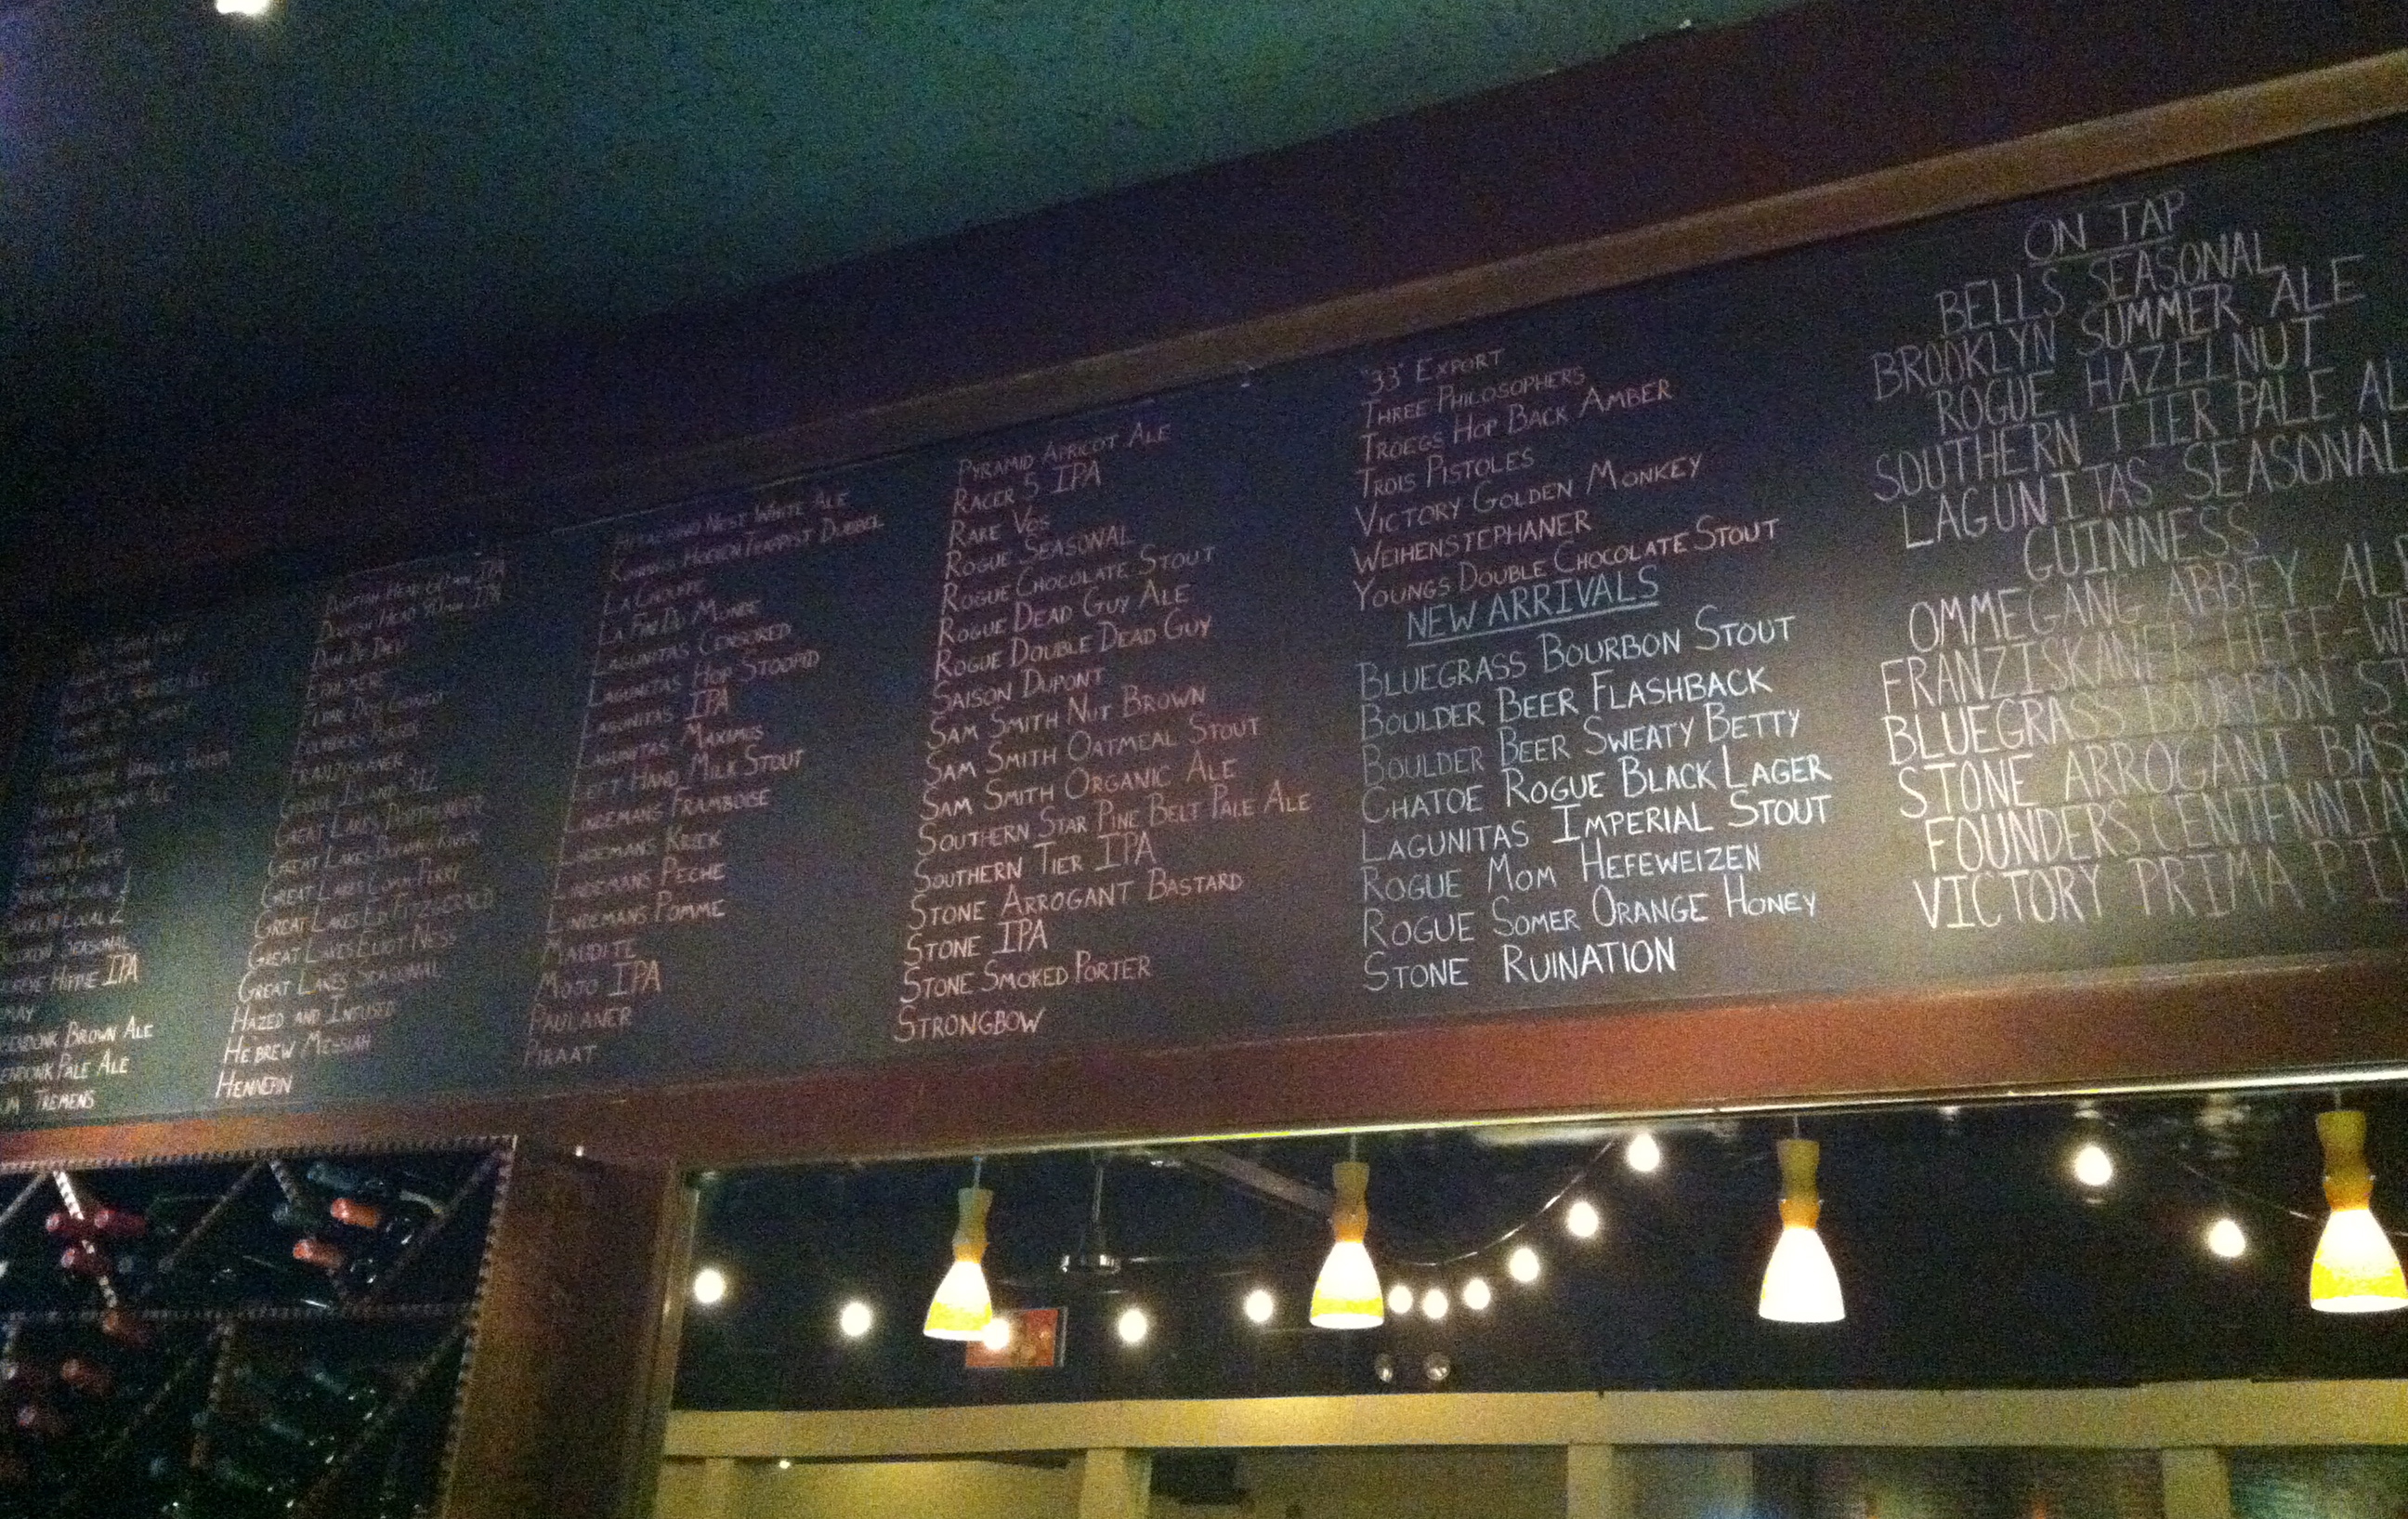 BROOKLYN LOCAL 1
LOCAL 2
SEASONAL
HIPPIE IPA
BROWN ALE
PALE ALE
TREMENS
DOGFISH HEAD 60 MIN IPA
DOGFISH HEAD 90 MIN IPA
FRANZISKANER
GOOSE ISLAND 312
GREAT LAKES DORTMUNDER
GREAT LAKES BURNING RIVER
GREAT LAKES COMM PERRY
GREAT LAKES ED FITZGERALD
GREAT LAKES ELIOT NESS
GREAT LAKES SEASONAL
HAZED AND INFUSED
HE'BREW MESSIAH
HENNEPIN
WHITE ALE
TRAPPIST DUBBEL
LA CHOUFFE
LA FIN DU MONDE
LAGUNITAS CENSORED
LAGUNITAS HOP STOOPID
LAGUNITAS IPA
LAGUNITAS MAXIMUS
LEFT HAND MILK STOUT
LINDEMANS FRAMBOISE
LINDEMANS KRIEK
LINDEMANS PECHE
LINDEMANS POMME
MAUDITE
MOJO IPA
PAULANER
PIRAAT
PYRAMID APRICOT ALE
RACER 5 IPA
RARE VOS
ROGUE SEASONAL
ROGUE CHOCOLATE STOUT
ROGUE DEAD GUY ALE
ROGUE DOUBLE DEAD GUY
SAISON DUPONT
SAM SMITH NUT BROWN
SAM SMITH OATMEAL STOUT
SAM SMITH ORGANIC ALE
SOUTHERN STAR PINE BELT PALE ALE
SOUTHERN TIER IPA
STONE ARROGANT BASTARD
STONE IPA
STONE SMOKED PORTER
STRONGBOW
"33" EXPORT
THREE PHILOSOPHERS
TROEGS HOP BACK AMBER
TROIS PISTOLES
VICTORY GOLDEN MONKEY
WEIHENSTEPHANER
YOUNGS DOUBLE CHOCOLATE STOUT
NEW ARRIVALS
BLUEGRASS BOURBON STOUT
BOULDER BEER FLASHBACK
BOULDER BEER SWEATY BETTY
CHATOE ROGUE BLACK LAGER
LAGUNITAS IMPERIAL STOUT
ROGUE MOM HEFEWEIZEN
ROGUE SOMER ORANGE HONEY
STONE RUINATION
ON TAP
BELLS SEASONAL
BROOKLYN SUMMER ALE
ROGUE HAZELNUT
SOUTHERN TIER PALE AL
LAGUNITAS SEASONAL
GUINNESS
OMMEGANG ABBEY AL
FRANZISKANER HEFE-W
BLUEGRASS BOURBON ST
STONE ARROGANT BAS
FOUNDERS CENTENNIA
VICTORY PRIMA PI